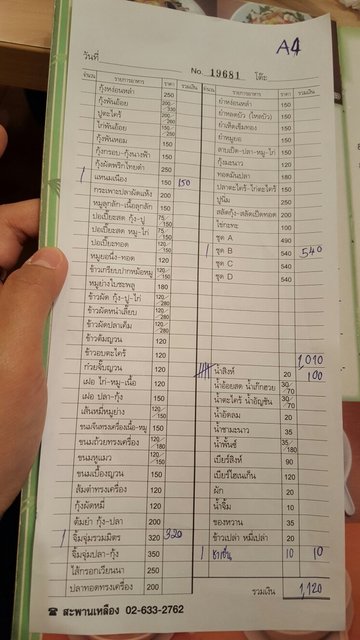 A4
วันที่
No. 19681 โต๊ะ
จำนวน รายการอาหาร ราคา รวมเงิน
กุ้งห่อนเหล่า 250
กุ้งพันอ้อย 200/250
ปูตะไคร้ 200
ไก่พันอ้อย 150
กุ้งพันหอม 150
กุ้งกรอบ-กุ้งนางฟ้า 150
กุ้งผัดพริกไทยดำ 250
1 แหนมเนือง 150 150
กระเพาะปลาผัดแห้ง 200
หมูลูกสัก-เนื้อลูกสัก 150
ปอเปี๊ยะสด กุ้ง-ปู 75/150
ปอเปี๊ยะสด หมู-ไก่ 75/150
ปอเปี๊ยะทอด 120/150
หมูยอนึ่ง-ทอด 120
ข้าวเกรียบปากหม้อหมู 120/150
หมูย่างใบชะพลู 180
ข้าวผัด กุ้ง-ปู-ไก่ 120/280
ข้าวผัดหนำเลี๊ยบ 120/280
ข้าวผัดปลาเค็ม 120/280
ข้าวต้มญวน 120
ข้าวอบตะไคร้ 120
ก๋วยจั๊บญวน 120
เฝอ ไก่-หมู-เนื้อ 120
เฝอ ปลา-กุ้ง 150
เส้นหมี่หมูย่าง 120/150
ขนมจีนทรงเครื่องเนื้อ-หมู 150
ขนมถ้วยทรงเครื่อง 120/180
ขนมหูแมว 120/150
ขนมเบื้องญวน 150
ส้มตำทรงเครื่อง 120
กุ้งผัดหมี่ 120
ต้มยำ กุ้ง-ปลา 200
1 จิ้มจุ่มรวมมิตร 320 320
จิ้มจุ่มปลา-กุ้ง 350
ไส้กรอกเวียนนา 250
ปลาทอดทรงเครื่อง 200
☎ สะพานเหลือง 02-633-2762
จำนวน รายการอาหาร ราคา รวมเงิน
ยำห่อนเหล่า 150
ยำหลดบัว (ไหลบัว) 150
ยำเห็ดเข็มทอง 150
ยำหมูยอ 150
ลาบเป็ด-ปลา-หมู-ไก่ 150
กุ้งมะนาว 120
ทอดมันปลา 180
ปลาตะไคร้-ไก่ตะไคร้ 150
ปูนิ่ม 250
สลัดกุ้ง-สลัดเป็ดทอด 200
ไข่กะทะ 100
ชุด A 490
1 ชุด B 540 540
ชุด C 540
ชุด D 540
1,010
น้ำสิงห์ 20 100
น้ำอ้อยสด น้ำเก๊กฮวย 30/70
น้ำตะไคร้ น้ำอัญชัน 30/70
น้ำอัดลม 20
น้ำชามะนาว 35
น้ำพั้นช์ 35/180
เบียร์สิงห์ 90
เบียร์ไฮเนเก้น 120
ผัก 20
น้ำจิ้ม 10
ของหวาน 35
ข้าวเปล่า หมี่เปล่า 20
1 ชาเย็น 10 10
รวมเงิน 1,120